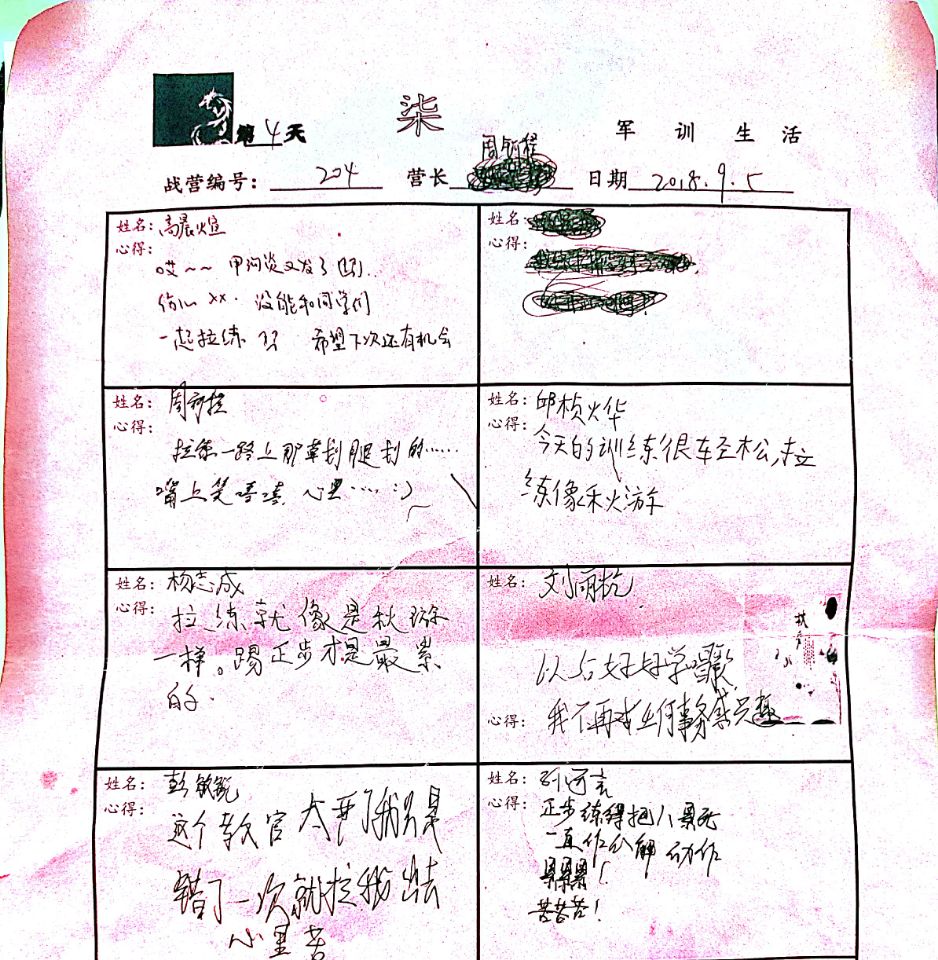 第4天
柒
军训生活
战营编号：204 营长 周 日期 2018.9.5
姓名：高晨煊
心得：
哎~~ 甲沟炎又发了
伤心 xx. 没能和同学们
一起拉练 希望下次还有机会
姓名：
心得：
姓名：周
心得：
拉练一路上那草割腿割的……
嘴上笑嘻嘻 心里…… :)
姓名：邱桢烨
心得：
今天的训练很轻松,拉
练像秋游
姓名：杨志成
心得：
拉练就像是秋游
一样。踢正步才是最累
的.
姓名：刘
以后好好学唱歌
心得：我不再对任何事务感兴趣
姓名：彭敏
心得：
这个教官太 了我只是
错了一次就拉我出去
心里苦
姓名：
心得：
正步练得把人累死
一直作分解动作
累累累!
苦苦苦!